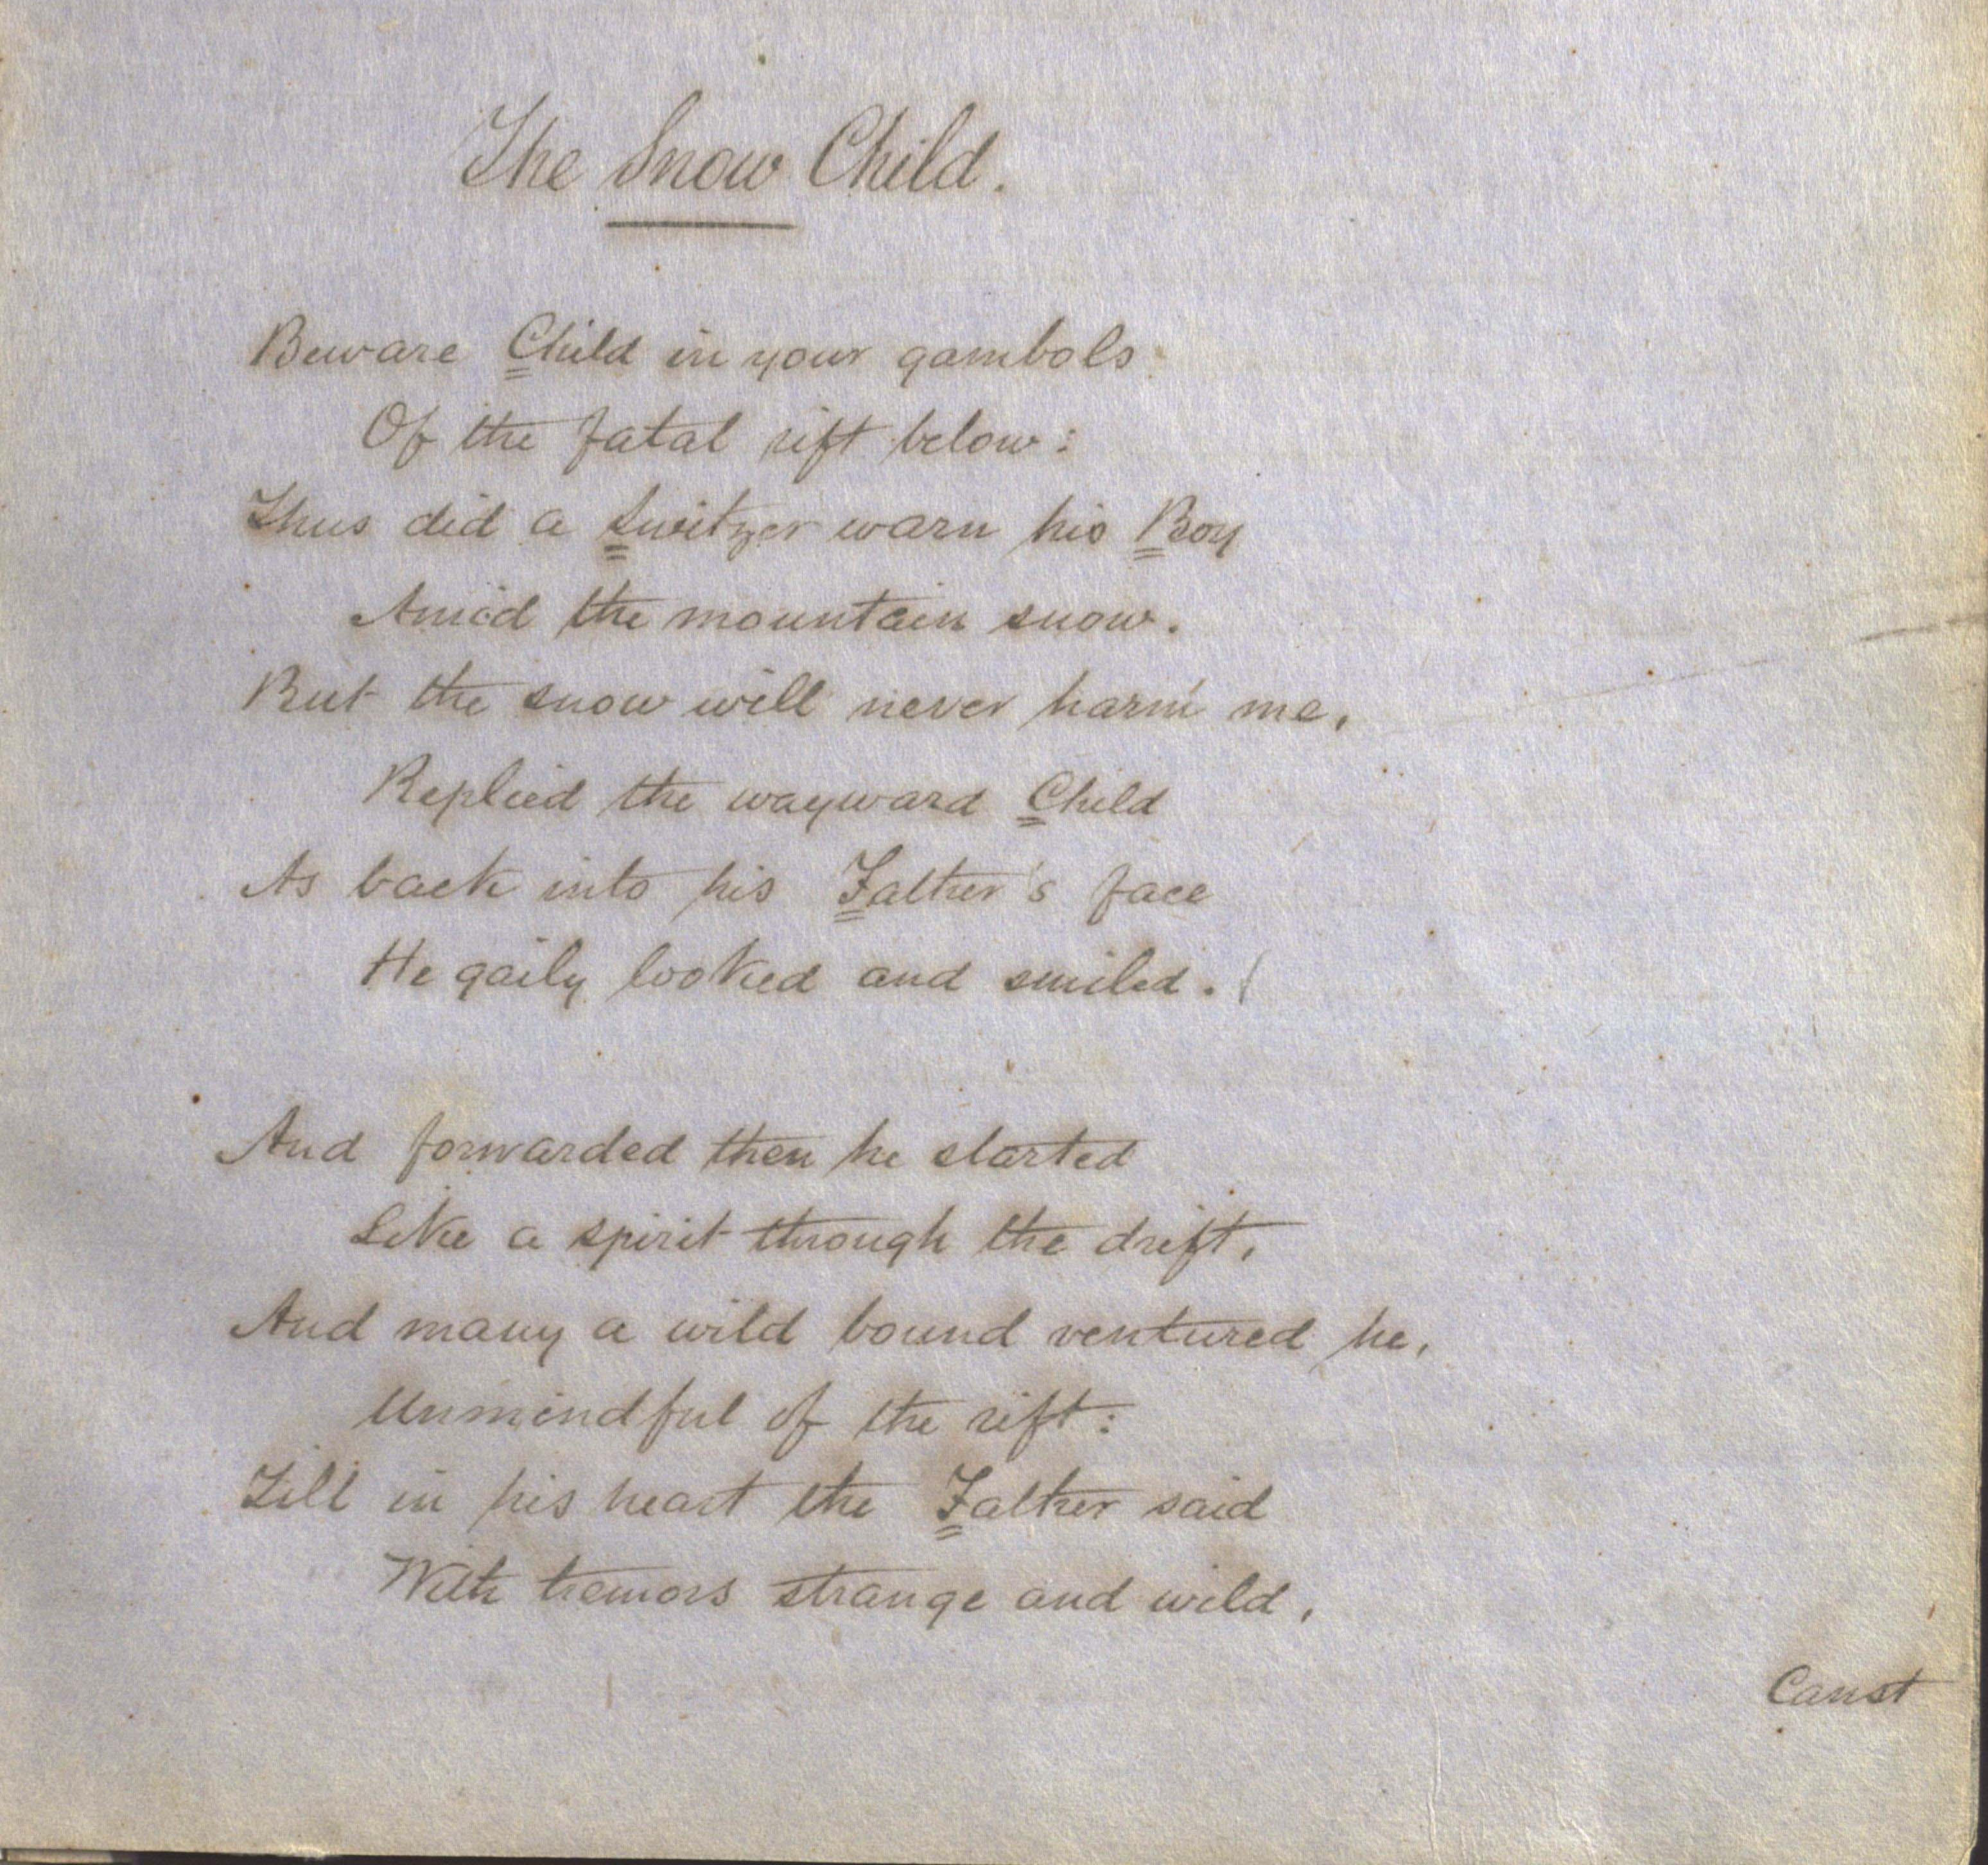 The Snow Child.
Beware Child in your gambols
Of the fatal rift below:
Thus did a Switzer warn his Boy
Amid the mountain snow.
But the snow will never harm me,
Replied the wayward Child
As back into his Father's face
He gaily looked and smiled.
And forwarded then he started
Like a spirit through the drift,
And many a wild bound ventured he,
Unmindful of the rift:
Till in his heart the Father said
With tremors strange and wild,
Canst